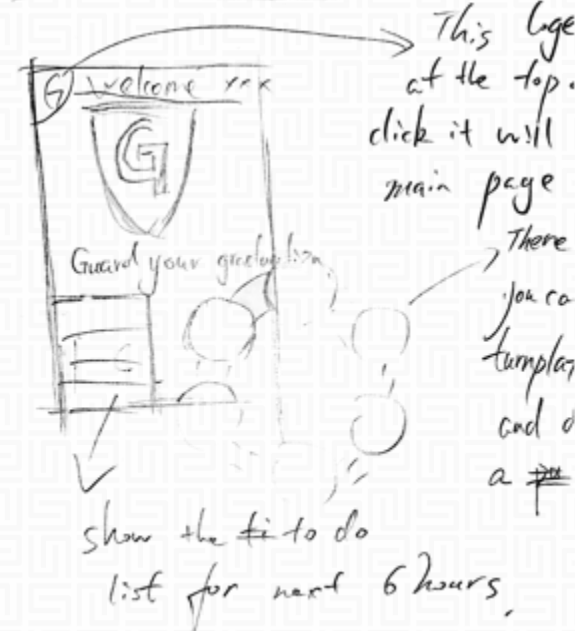 G Welcome xxx
G
Guard your graduation
This
at the top.
click it will
main page
There
you ca
and d
a
show the to do
list for next 6 hours.